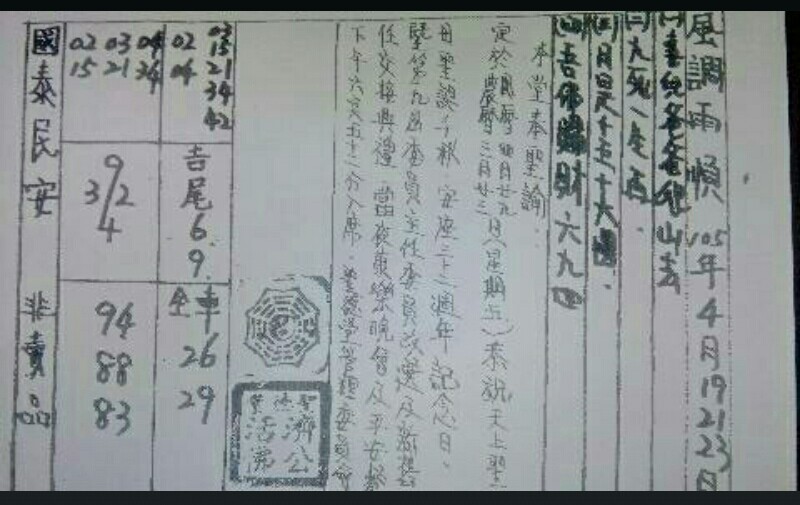 風調雨順 105年4月19 21 23日
(一)喜
(二)九死一生
(三)月是十五十六
(四)吾佛賜財六九
本堂奉聖諭
定於國曆四月廿九
農曆三月廿三日(星期五)恭祝天上聖
母聖誕千秋，安座三十二週年記念日。
暨第九屆委員主任委員改選及新舊
任交接典禮，當夜康樂晚會及平安
下午六六五十二分入席。聖德堂管理委員會
聖德堂
濟公
活佛
03
15
02 21
04 34
42
吉尾
6.
9.
全車
26
29
02 03 04
15 21 34
9
3/2
4
94
88
83
國泰民安 非賣品